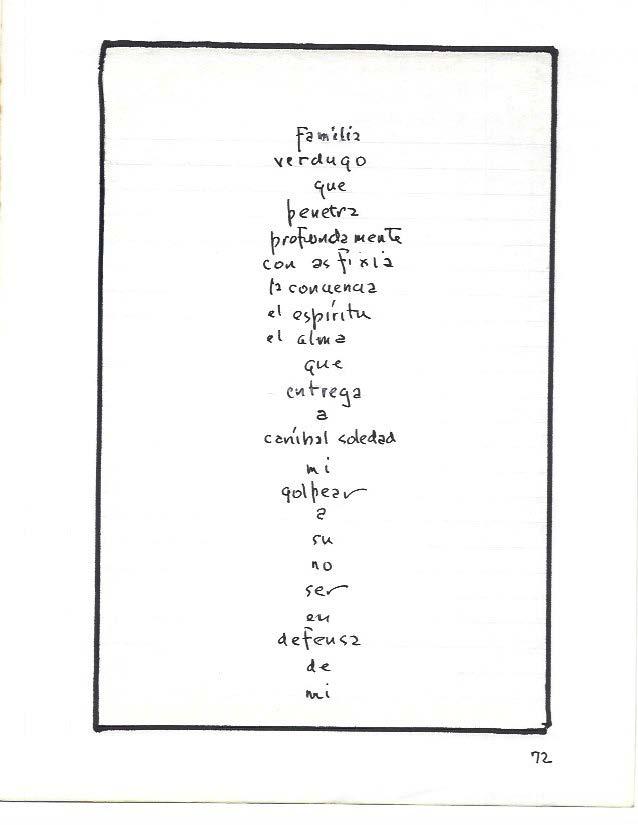 Familia
verdugo
que
penetra
profundamente
con asfixia
la conciencia
el espíritu
el alma
que
entrega
a
caníbal soledad
mi
golpear
a
su
no
ser
en
defensa
de
mi
72